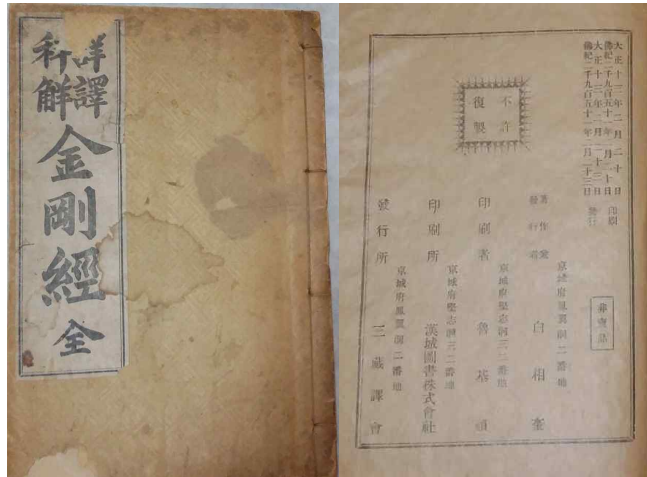 詳譯
科解
金剛經 全
大正十三年二月二十日
佛紀二千九百五十一年一月二十日
印刷
大正十三年二月二十三日
佛紀二千九百五十一年二月二十三日
發行
不許
復製
非賣品
京城府鳳翼洞二番地
著作兼
發行者
白相奎
京城府堅志洞三二番地
印刷者 魯基禎
京城府堅志洞三二番地
印刷所 漢城圖書株式會社
京城府鳳翼洞二番地
發行所 三藏譯會